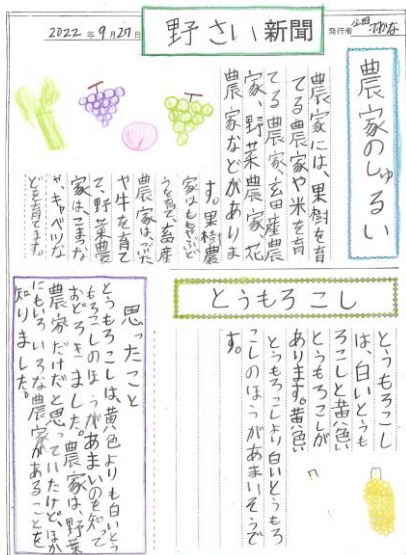 2022年9月27日
野さい新聞
発行者
農家のしゅるい
農家には、果樹を育
てる農家や米を育
てる農家、畜産農
家、野菜農家、花
農家などがありま
す。果樹農
家はももやぶど
うを育て、畜産
農家は、ぶた
や牛を育て
て、野菜農
家は、こまつな
や、キャベツな
どを育てます。
とうもろこし
とうもろこし
は、白いとうも
ろこしと黄色い
とうもろこしが
あります。黄色い
とうもろこしより白いとうもろ
こしのほうがあまいそうで
す。
思ったこと
とうもろこしは、黄色よりも白いとう
もろこしのほうがあまいのを知って
おどろきました。農家は、野菜
農家だけだと思っていたけどほか
にもいろいろな農家があることを
知りました。